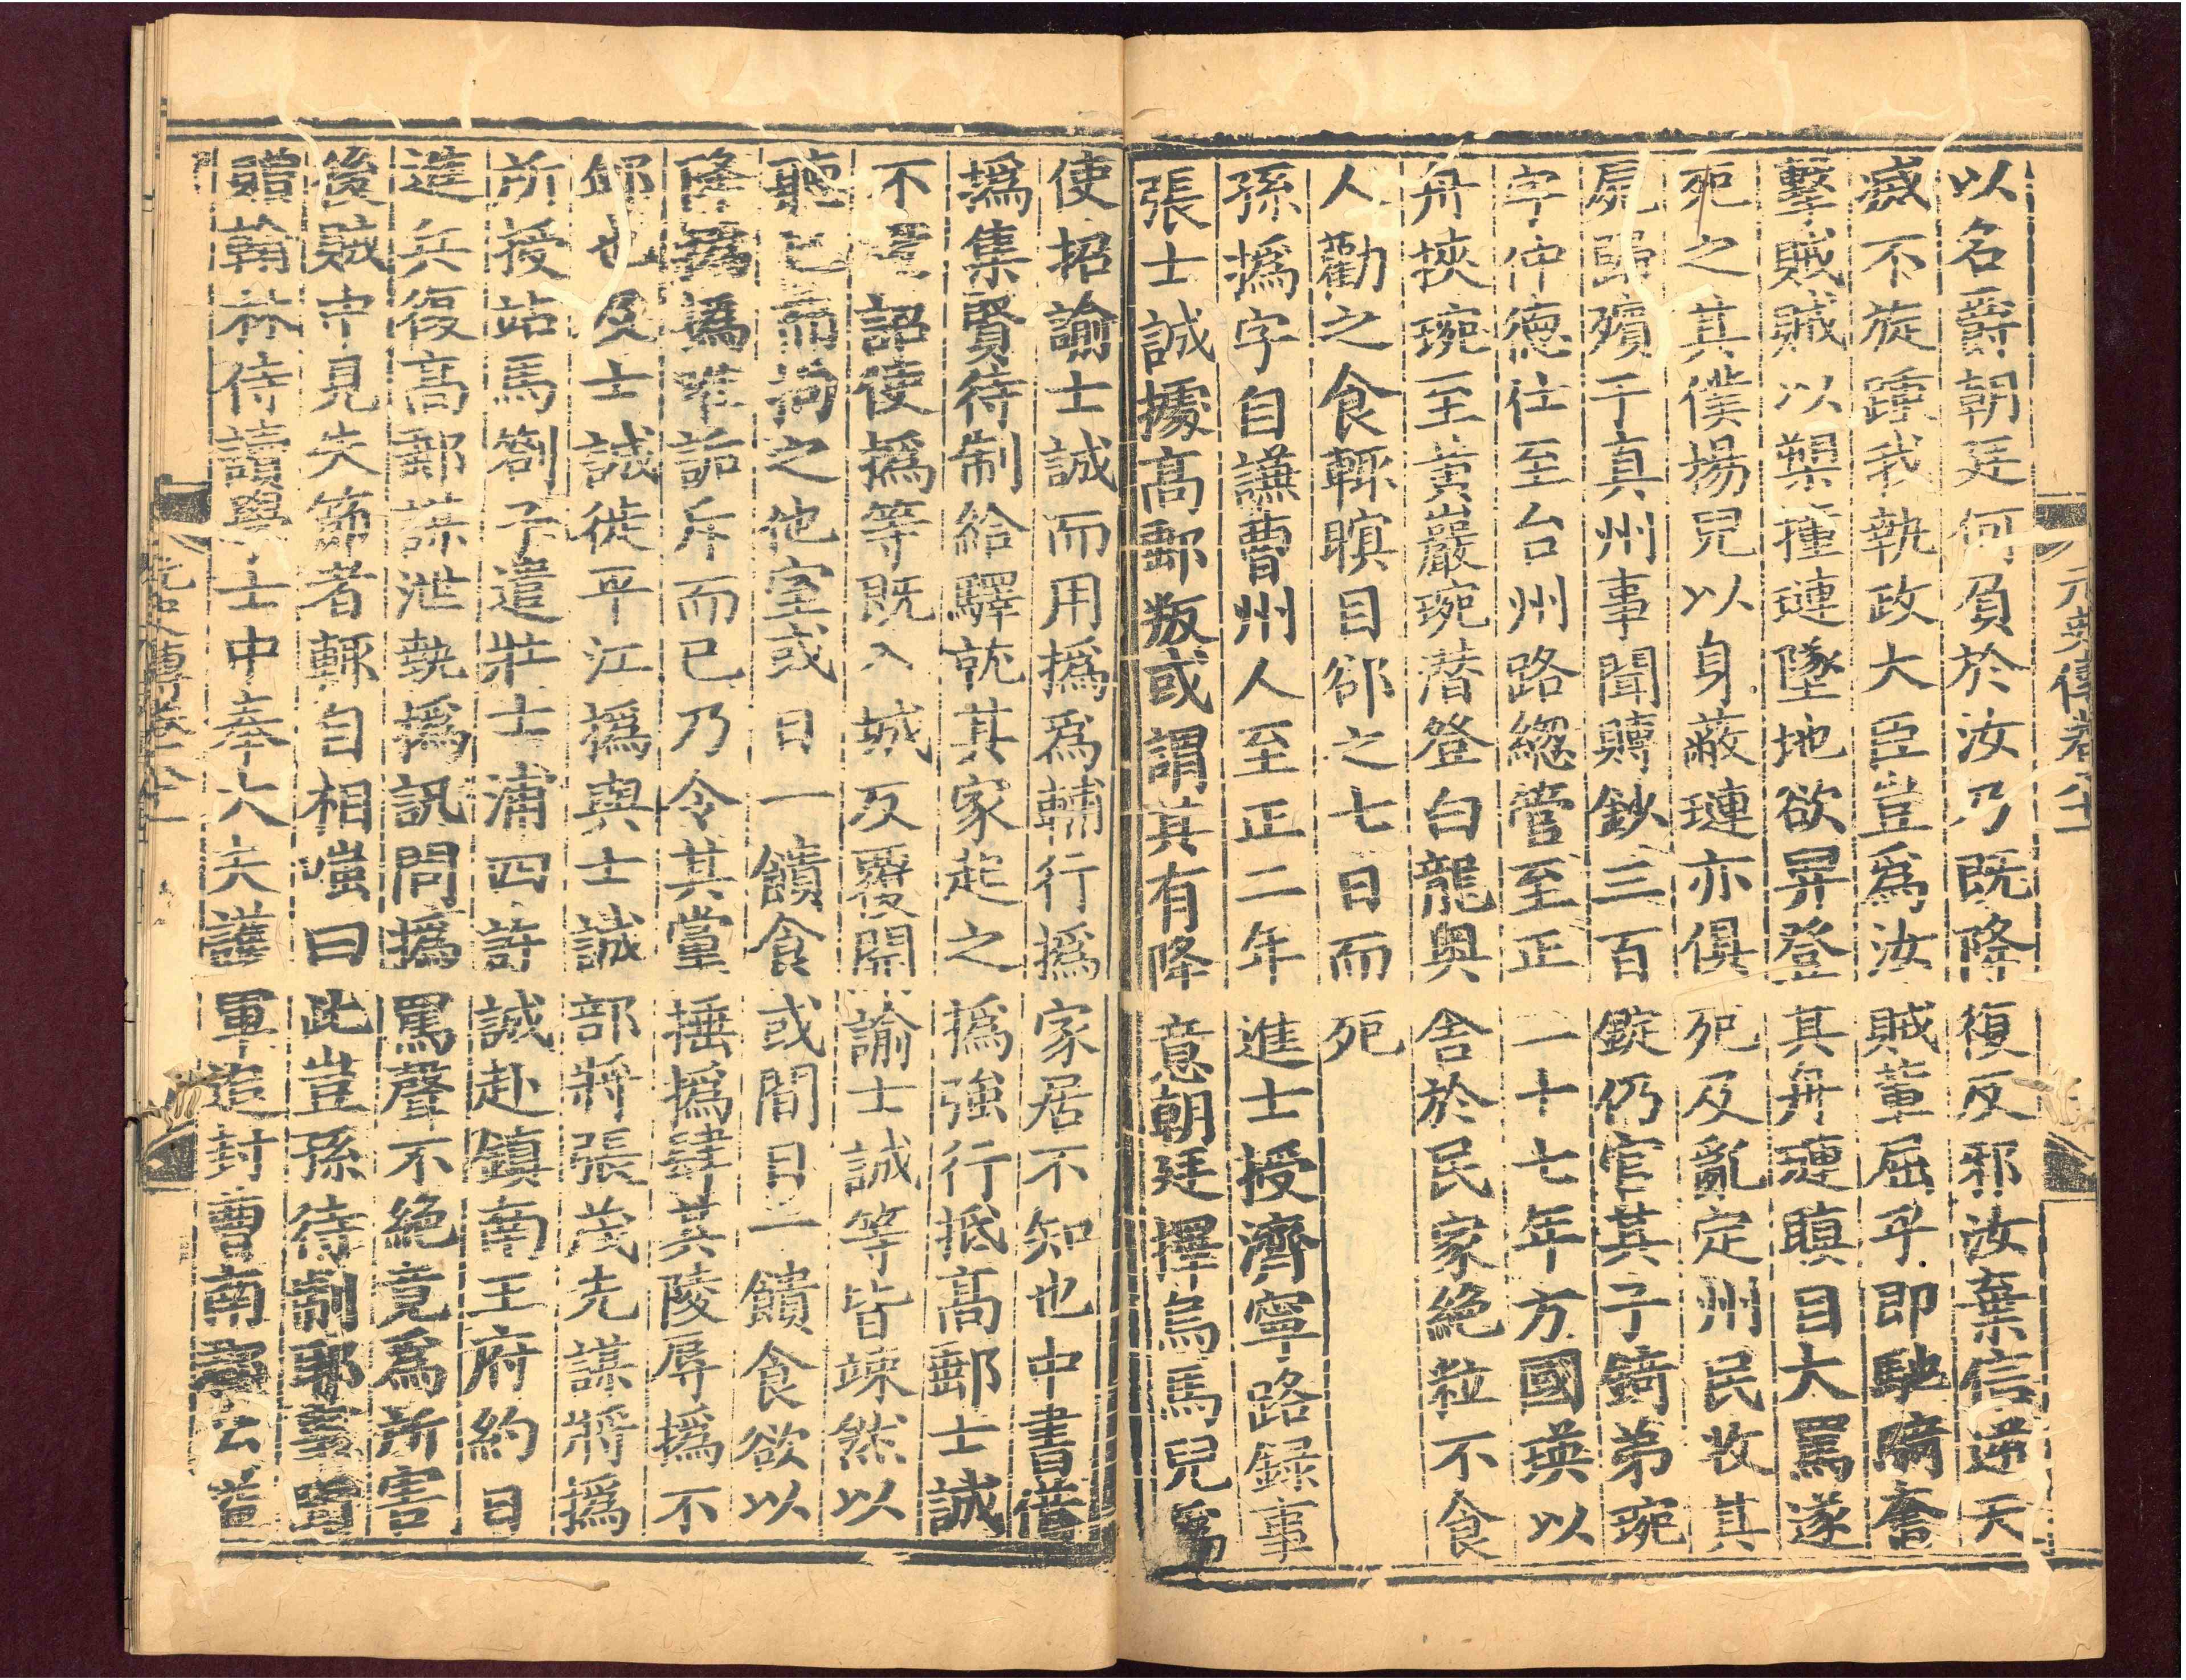 以名爵朝廷何負於汝乃既降復反邪汝棄信逆天
滅不旋踵我執政大臣豈爲汝賊輩屈乎即馳騎奪
擊賊賊以槊撞璉墜地欲舁登其舟璉瞋目大罵遂
死之其僕揚兒以身蔽璉亦俱死及亂定州民收其
屍歸殯于真州事聞賻鈔三百錠仍官其子錡弟琬
字仲德仕至台州路緫管至正二十七年方國瑛以
舟挾琬至黃巖琬潜登白龍奧舍於民家絶粒不食
人勸之食輒瞑目郤之七日而死
孫撝字自謙曹州人至正二年進士授濟寧路録事
張士誠據高郵叛或謂其有降意朝廷擇烏馬兒爲
使招諭士誠而用撝爲輔行撝家居不知也中書借
撝集賢待制給驛就其家起之撝強行抵高郵士誠
不迓詔使撝等既入城反覆開諭士誠等皆竦然以
聽已而拘之他室或日一饋食或間日一饋食欲以
降撝撝唯詬斥而已乃令其黨捶撝肆其陵辱撝不
䘏也及士誠徙平江撝與士誠部將張茂先謀將撝
所授站馬劄子遣壯士浦四許誠赴鎮南王府約日
進兵復高郵謀泄執撝訊問撝罵聲不絶竟爲所害
後賊中見失節者輒自相嗤曰此豈孫待制耶事聞
贈翰林侍讀學士中奉大夫護軍追封曹南郡公謚